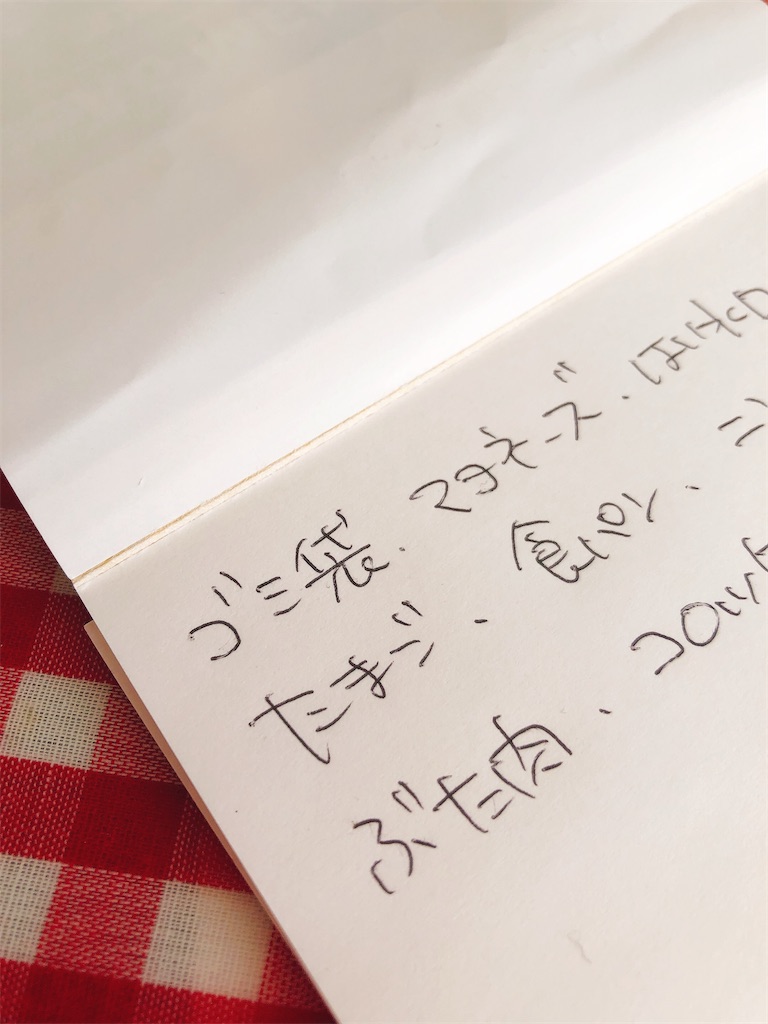 ゴミ袋、マヨネーズ、
たまご、食パン、
ぶた肉、コロッケ